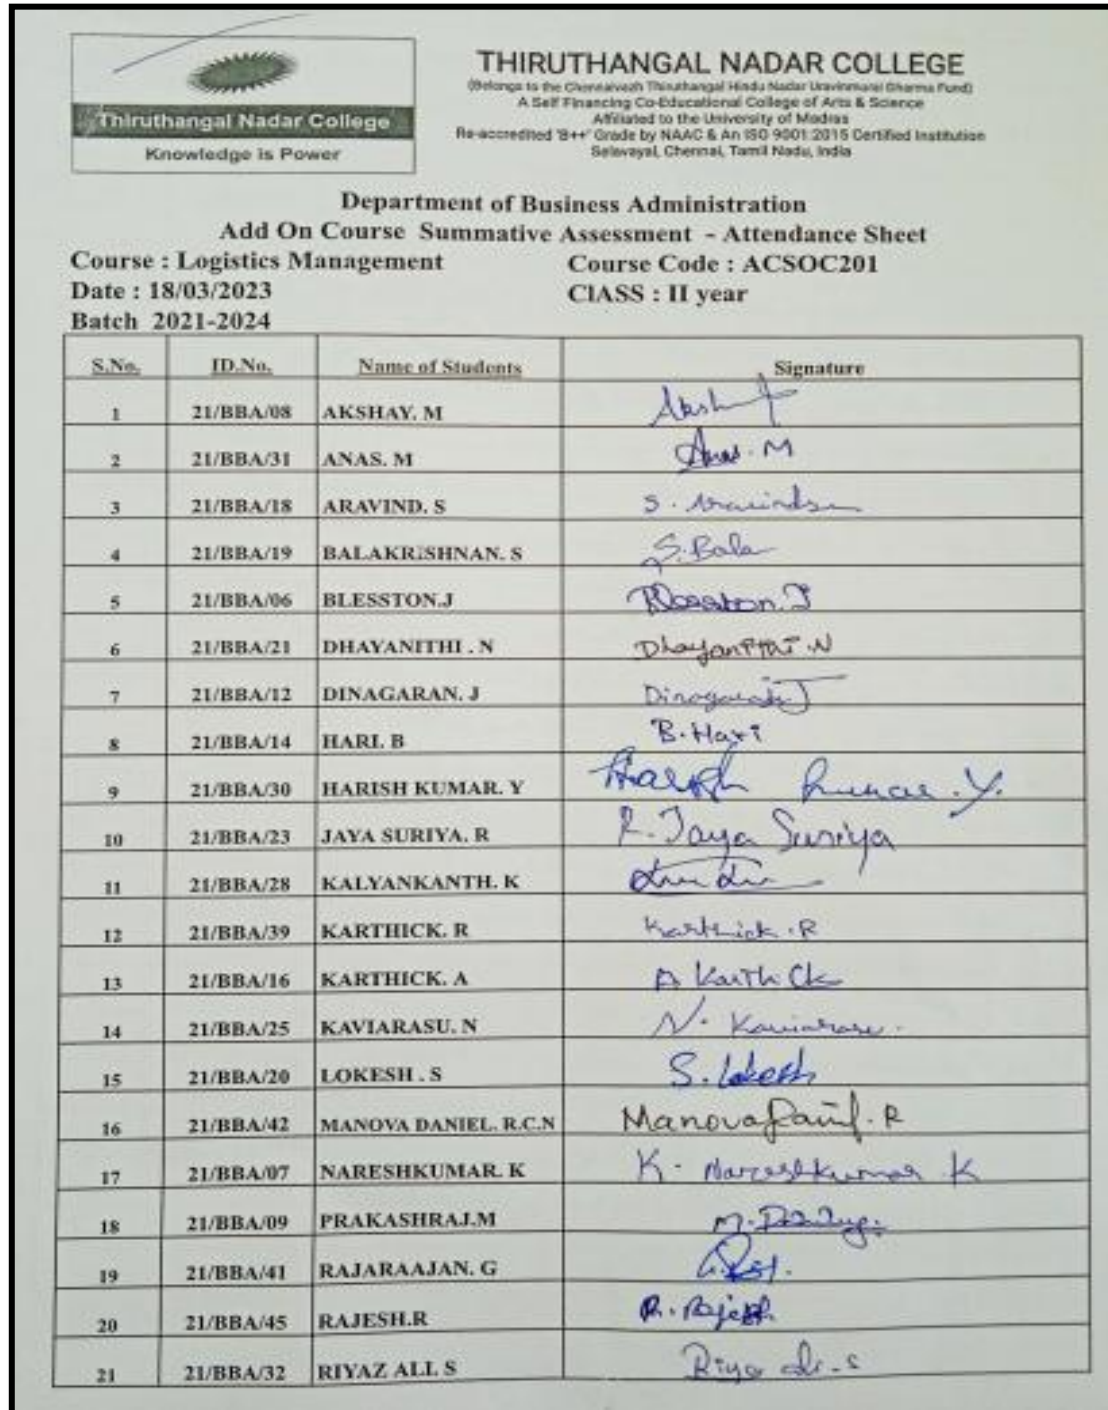 Thiruthangal Nadar College
Knowledge is Power
THIRUTHANGAL NADAR COLLEGE
(Belongs to the Chennaivazh Thiruthangal Hindu Nadar Uravinmurai Dharma Fund)
A Self Financing Co-Educational College of Arts & Science
Affiliated to the University of Madras
Re-accredited 'B++' Grade by NAAC & An ISO 9001:2015 Certified Institution
Selavayal, Chennai, Tamil Nadu, India
Department of Business Administration
Add On Course Summative Assessment - Attendance Sheet
Course : Logistics Management Course Code : ACSOC201
Date : 18/03/2023 ClASS : II year
Batch 2021-2024
S.No. ID.No. Name of Students Signature
1 21/BBA/08 AKSHAY. M
2 21/BBA/31 ANAS. M Anas. M
3 21/BBA/18 ARAVIND. S S.
4 21/BBA/19 BALAKRISHNAN. S S.Bala
5 21/BBA/06 BLESSTON.J Blesston.J
6 21/BBA/21 DHAYANITHI . N Dhayanithi.N
7 21/BBA/12 DINAGARAN. J
8 21/BBA/14 HARI. B B.Hari
9 21/BBA/30 HARISH KUMAR. Y Harish Kumar.Y.
10 21/BBA/23 JAYA SURIYA. R R.Jaya Suriya
11 21/BBA/28 KALYANKANTH. K
12 21/BBA/39 KARTHICK. R Karthick.R
13 21/BBA/16 KARTHICK. A A Karthick
14 21/BBA/25 KAVIARASU. N N. Kaviarasu.
15 21/BBA/20 LOKESH . S S.Lokesh
16 21/BBA/42 MANOVA DANIEL. R.C.N ManovaDaniel.R
17 21/BBA/07 NARESHKUMAR. K K. Nareshkumar K
18 21/BBA/09 PRAKASHRAJ.M
19 21/BBA/41 RAJARAAJAN. G
20 21/BBA/45 RAJESH.R R.Rajesh
21 21/BBA/32 RIYAZ ALI. S